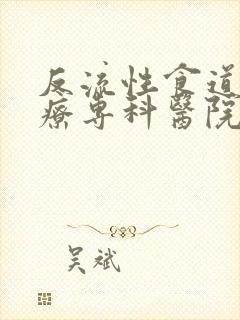 反流性食道
療專科醫院
吴斌